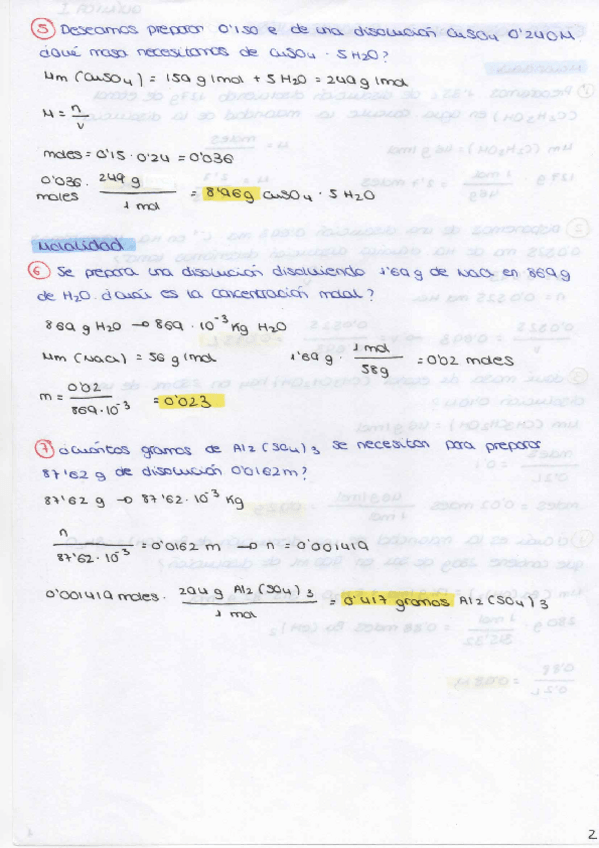 ⑤ Deseamos preparar 0'150 l de una disolución CuSO4 0'240M.
¿Qué masa necesitamos de CuSO4 · 5H2O?
Mm (CuSO4) = 159 g/mol + 5 H2O = 249 g/mol
M = n/v
moles = 0'15 · 0'24 = 0'036
0'036 moles · 249 g / 1 mol = 8'96g CuSO4 · 5 H2O
Molalidad
⑥ Se prepara una disolución disolviendo 1'69 g de NaCl en 869 g
de H2O. ¿Cuál es la concentración molal?
869 g H2O → 869 · 10⁻³ Kg H2O
Mm (NaCl) = 56 g/mol 1'69 g · 1 mol / 58g = 0'02 moles
m = 0'02 / 869·10⁻³ = 0'023
⑦ ¿Cuántos gramos de Al2(SO4)3 se necesitan para preparar
87'62 g de disolución 0'0162m?
87'62 g → 87'62 · 10⁻³ Kg
n / 87'62 · 10⁻³ = 0'0162 m → n = 0'001419
0'001419 moles · 294 g Al2(SO4)3 / 1 mol = 0'417 gramos Al2(SO4)3
2